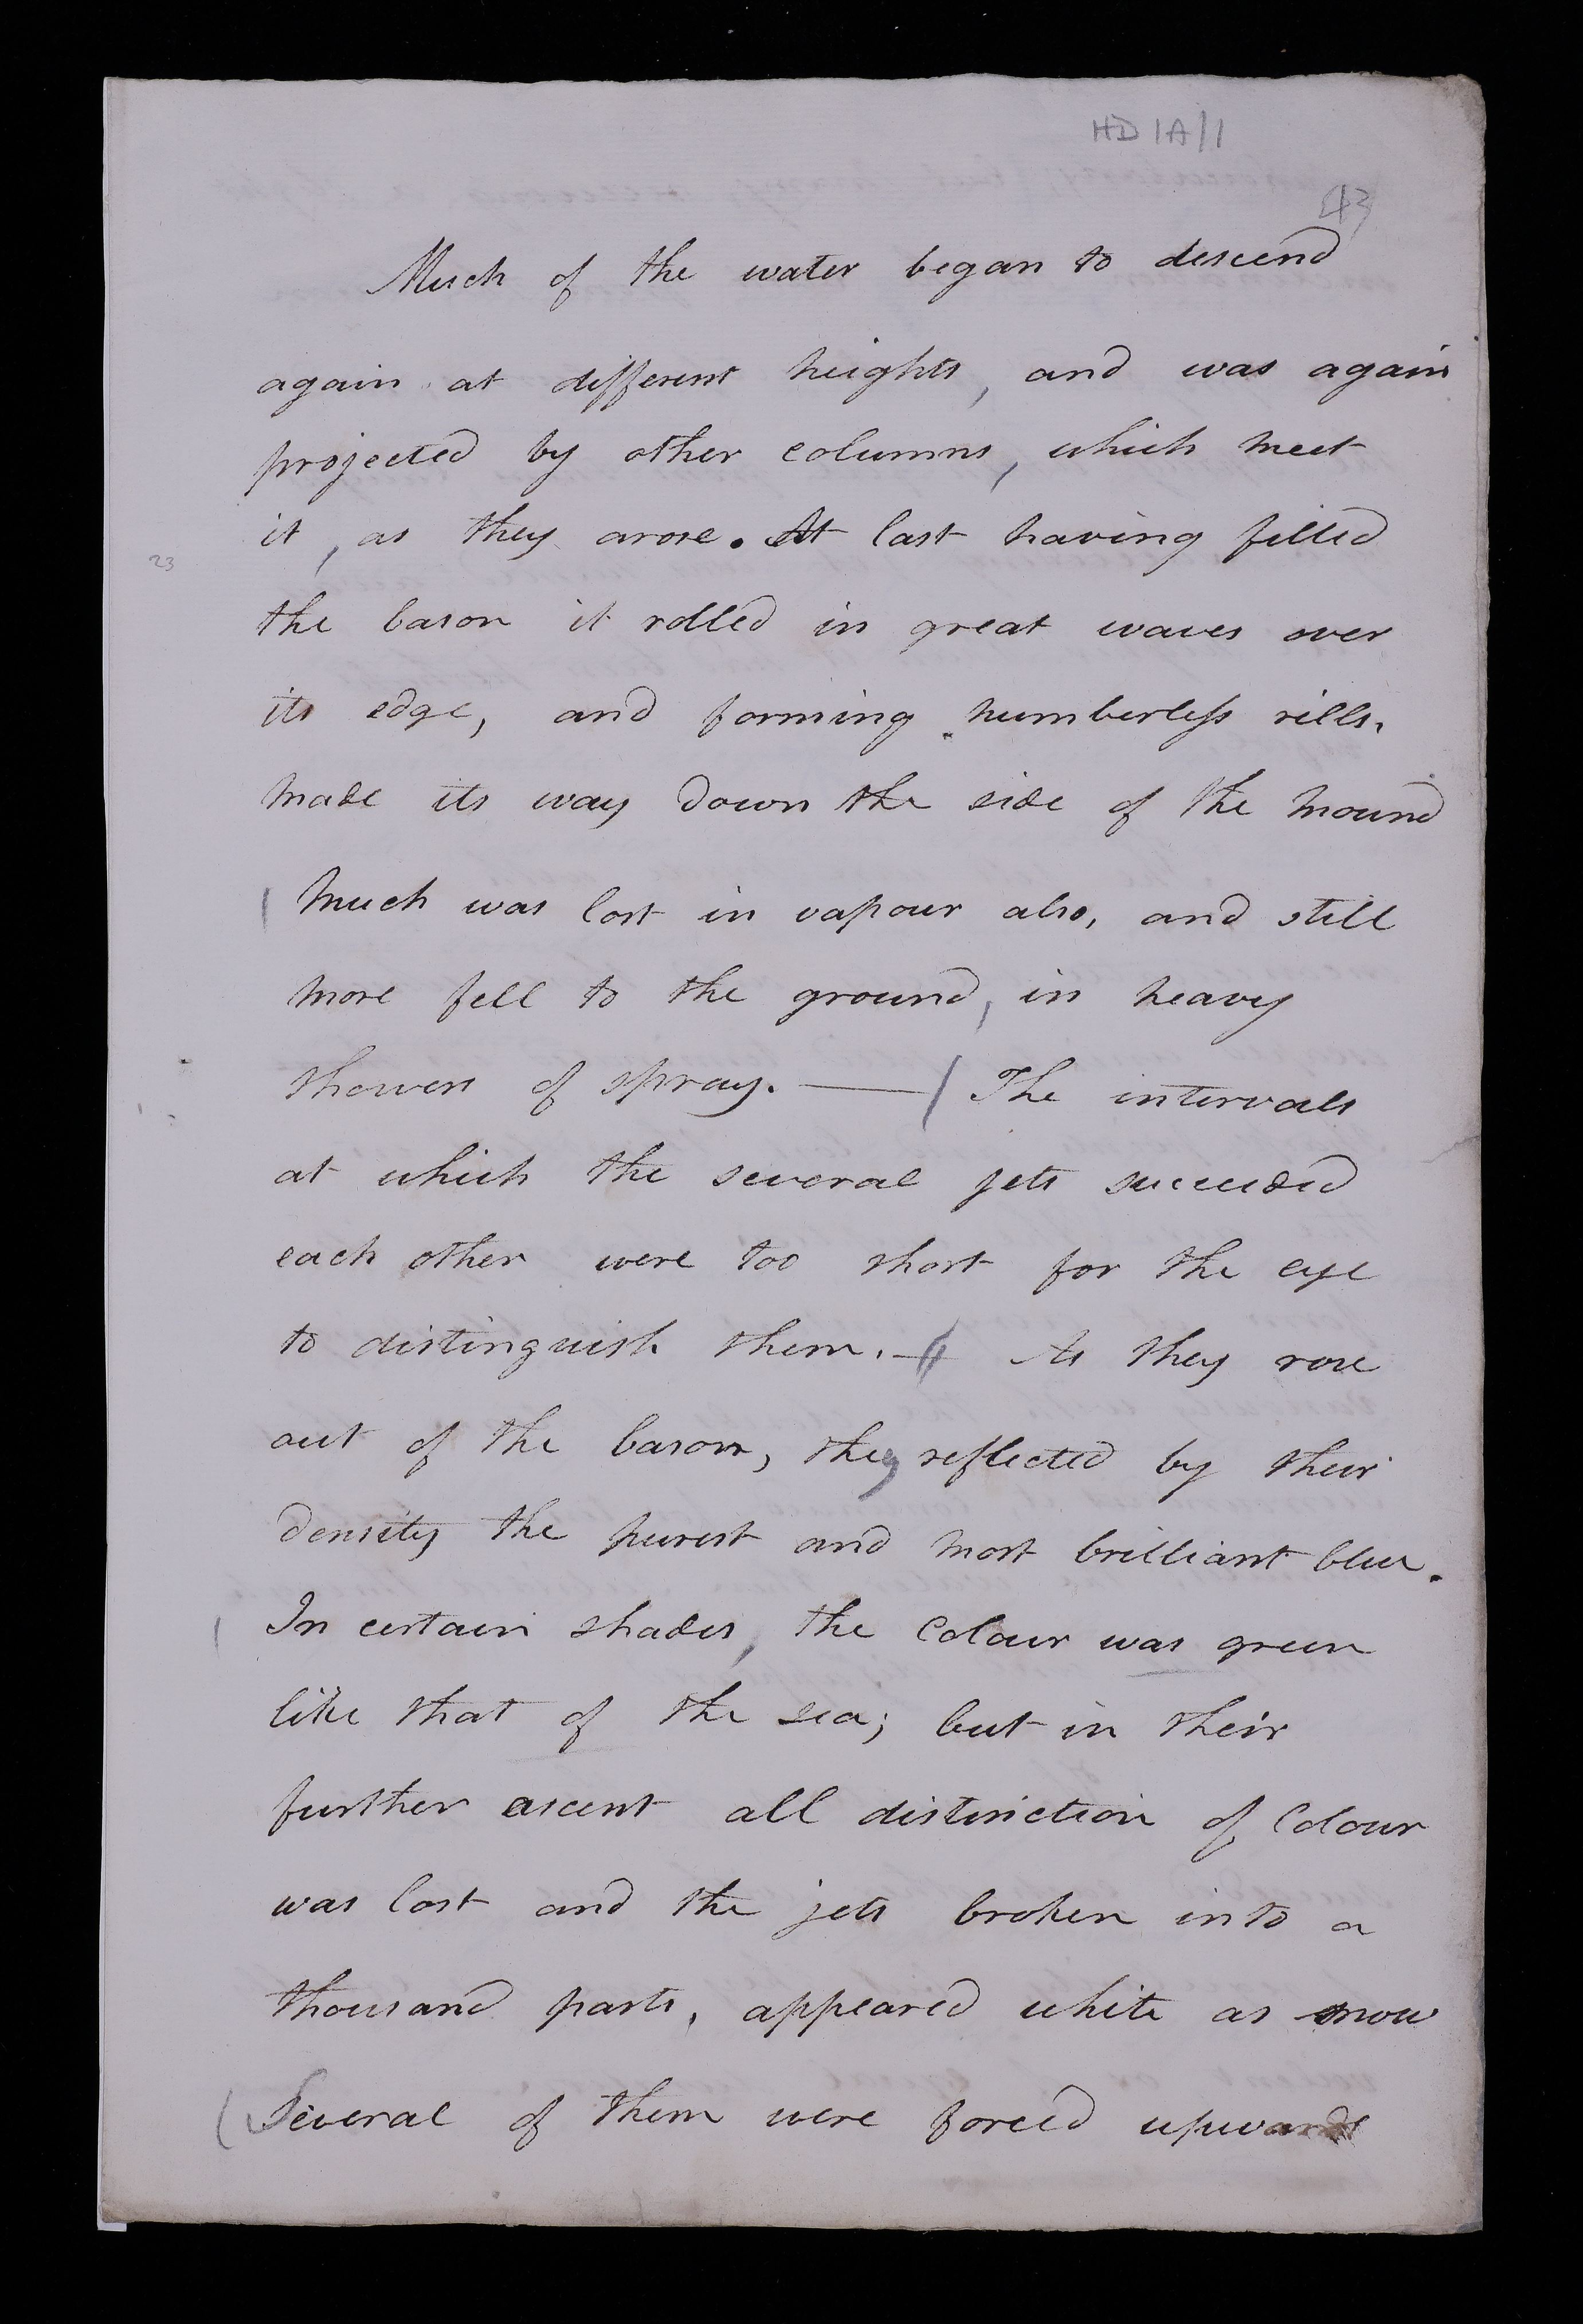 HD 1A/1
43
Much of the water began to descend
again at different heights, and was again
projected by other columns, which meet
it, as they arose. At last having filled
23
the bason it rolled in great waves over
its edge, and forming numberless rills,
made its way down the side of the mound
Much was lost in vapour also, and still
more fell to the ground, in heavy
showers of spray. —— / The intervals
at which the several jets succeeded
each other were too short for the eye
to distinguish them. — As they rose
out of the bason, they reflected by their
density the purest and most brilliant blue.
In certain shades, the Colour was green
like that of the sea; but in their
further ascent all distinction of Colour
was lost and the jets broken into a
thousand parts, appeared white as snow
(Several of them were forced upwards